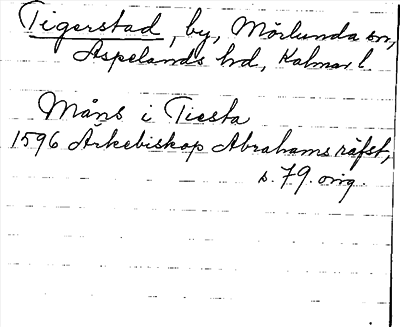 Tigerstad, by, Mörlunda sn,
Aspelands hd, Kalmar l.
Måns i Tiesta
1596 Ärkebiskop Abrahams räfst,
s. 79. orig.